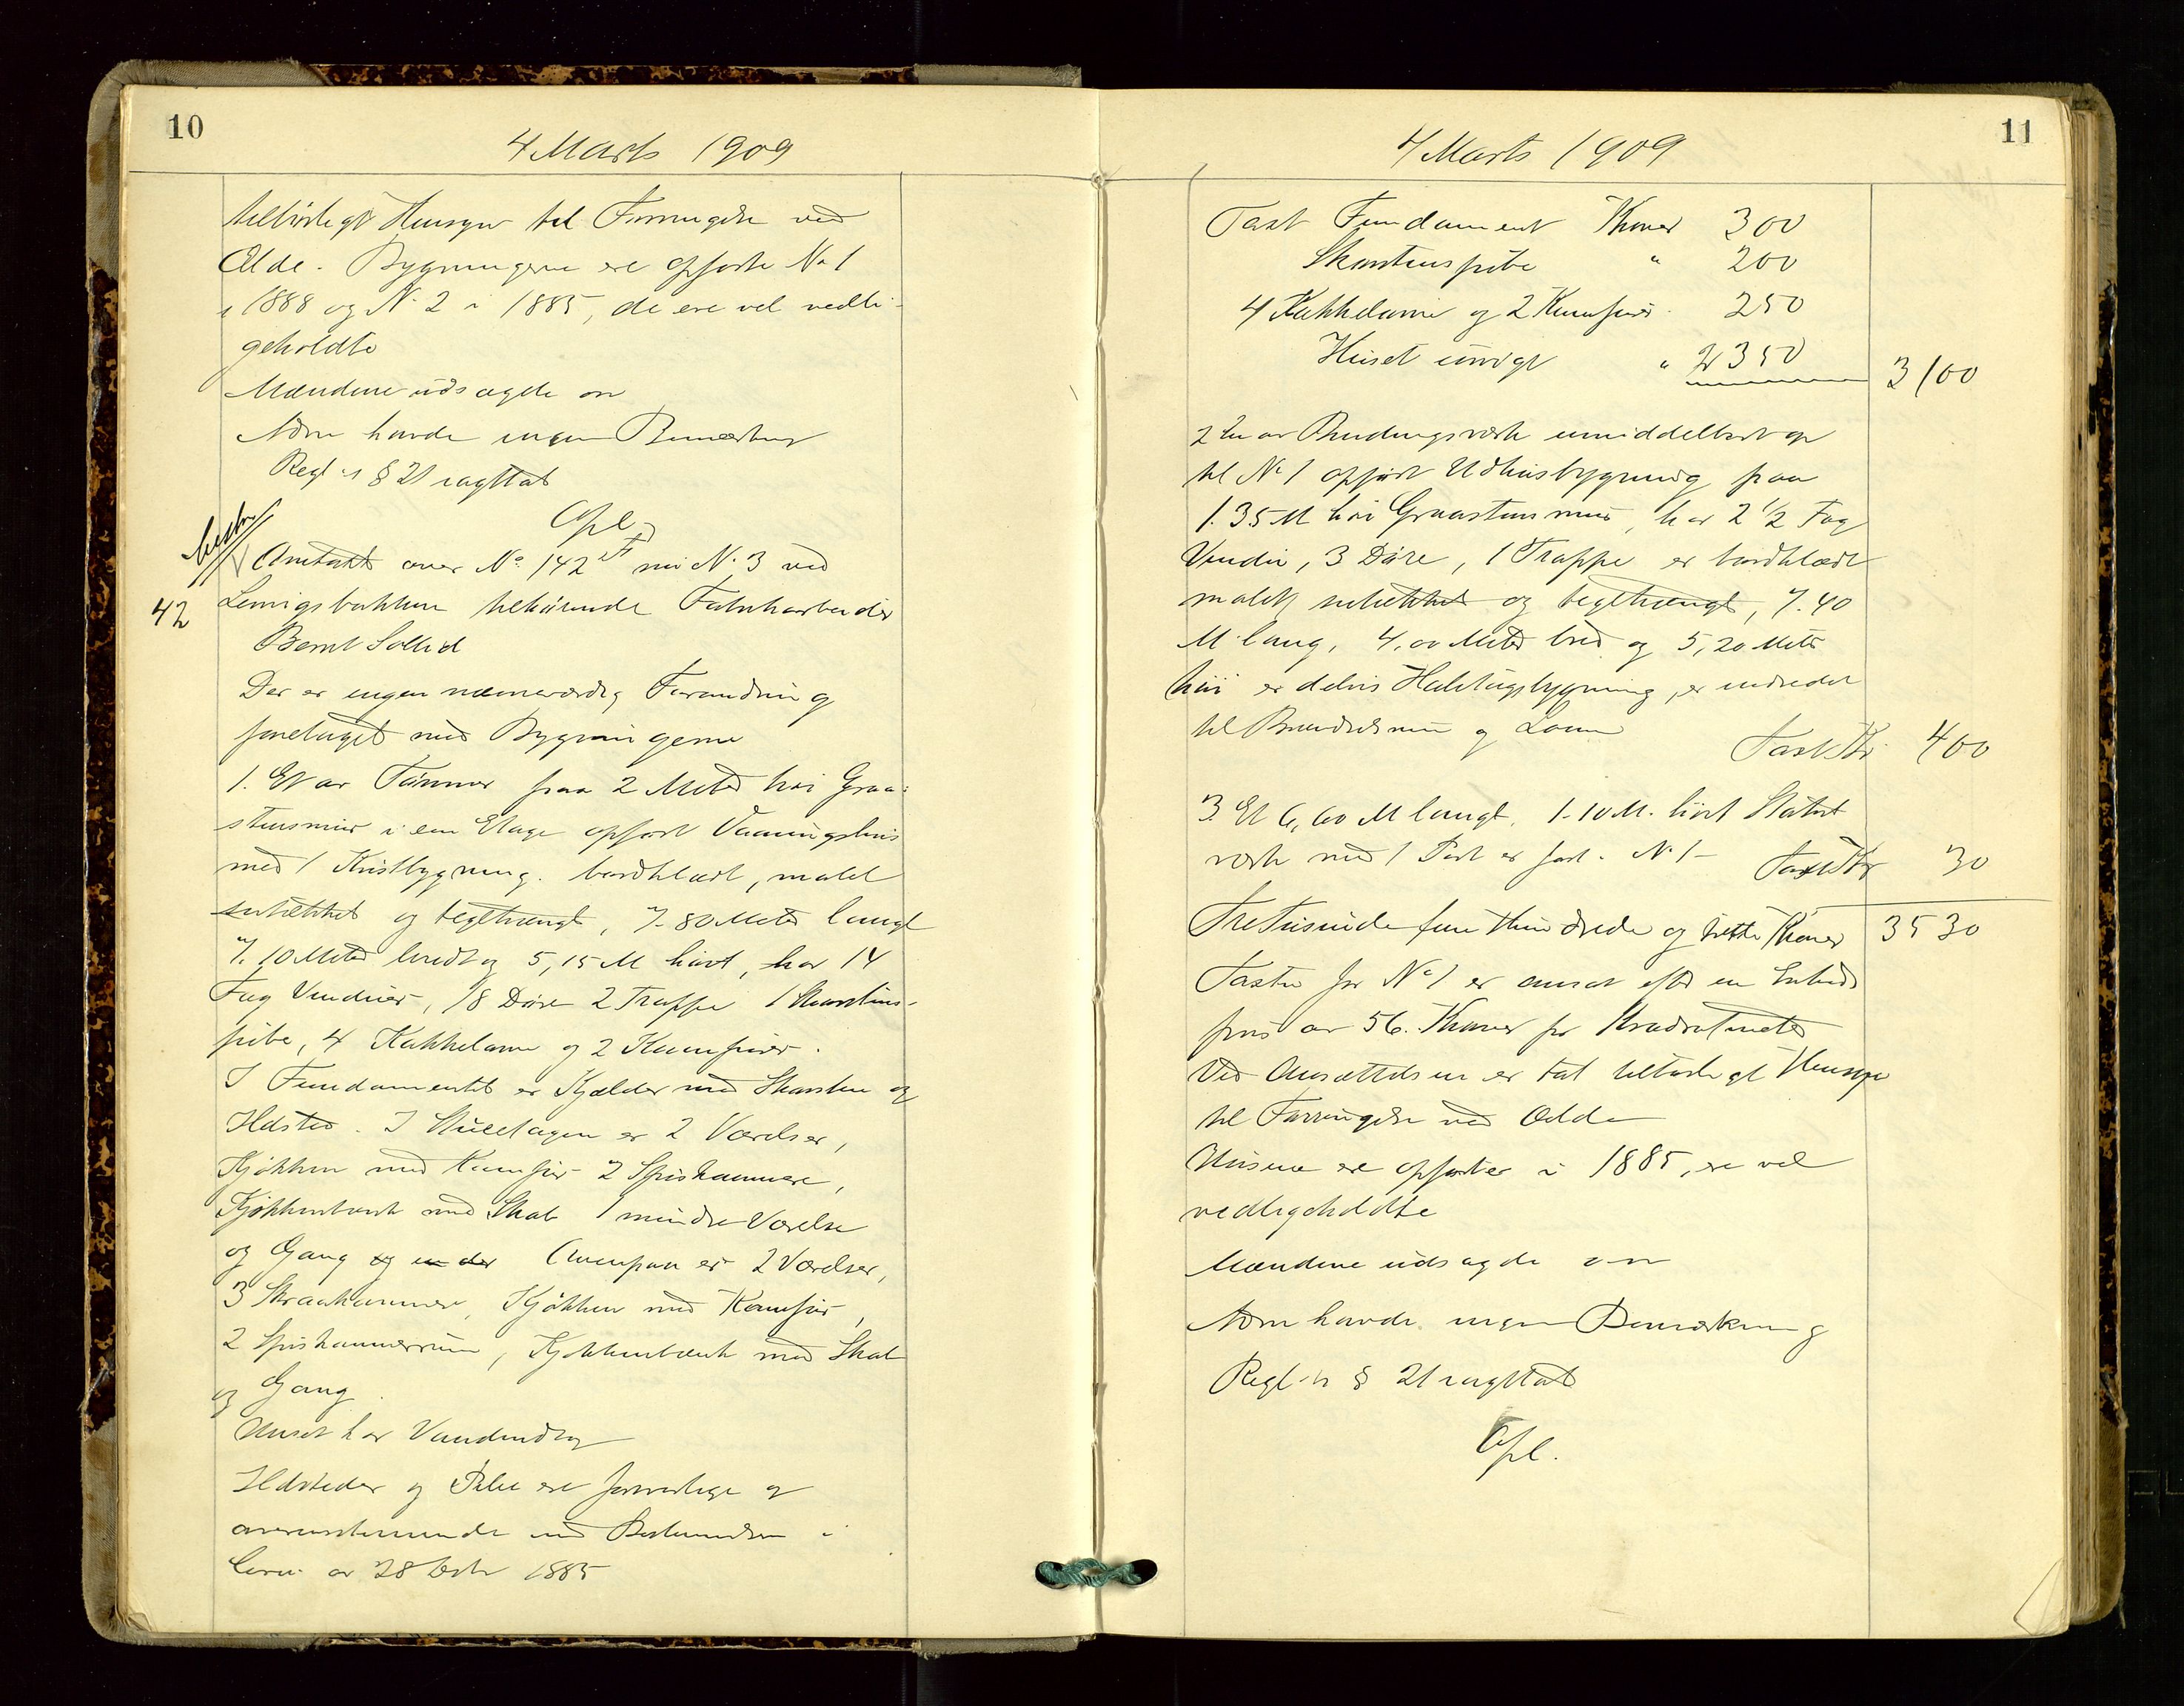 10
4 Marts 1909
tilbørligt Hensyn til Forringelse ved
Ælde. Bygningerne ere opførte No 1
i 1888 og No 2 i 1885, de ere vel vedli-
geholdte
Mændene udsagde
havde ingen Bemærkning
Regl § 21 iagttat
Opl.
Omtaxt over No. 142 nu No. 3 ved
42
tilhørende Fabrikarbeider
Bernt Sollid
Der er ingen nævneværdig Forandring
foretaget med Bygningerne
1. Et av Tømmer paa 2 Meter høi Graa-
stensmur i een Etage opført Vaaningshus
med 1 Kvistbygning. bordklædt, malet
og tegltængt, 7.80 Meter langt
7.10 Meter bredt og 5,15 M høit, har 14
Fag Vinduer, 18 Døre 2 Trapper 1 Skorstens-
pibe, 4 Kakkelovne og 2 Komfurer.
I Fundamentet er Kjælder med Skorsten og
Ildsted. I Stueetagen er 2 Værelser,
Kjøkken med Komfur 2 Spiskammere,
Kjøkkenbænk med Skab 1 mindre Værelse
og Gang og Ovenpaa er 2 Værelser,
3 Skraakammere, Kjøkken med Komfur,
2 Spiskammerrum, Kjøkkenbænk med Skab
og Gang.
Huset har Vandindlæg
Ildsteder og Piber ere forsvarlige og
overensstemmende med Bestemmelsen i
av 28 1885
11
4 Marts 1909
Taxt Fundament Kroner 300
Skorstenspibe " 200
4 Kakkelovne og 2 Komfurer 250
Huset øvrigt " 2350
3100
2 En av Bindingsværk umiddelbart op
til No 1 opført Udhusbygning paa
1.35 M høi Graastensmur, har 2 1/2 Fag
Vinduer, 3 Døre, 1 Trappe er bordklædt
malet og tegltængt, 7.40
M lang, 4,00 Meter bred og 5,20 Meter
høi er delvis Halvtagsbygning, er indredet
til Brændselsrum og
Taxt Kr. 400
3. Et 6,60 M langt, 1.10 M. høit Stakit-
værk med 1 Port er for No 1 –
Taxt Kr 30
Tretusinde fem Hundrede og tretti Kroner 3530
Taxten for No 1 er ansat efter en Enheds
pris av 56. Kroner pr Kvadratmeter
Ved Ansættelsen er tat tilbørligt Hensyn
til Forringelse ved Ælde
Husene ere opførte i 1885, ere vel
vedligeholdte
Mændene udsagde
havde ingen Bemærkning
Regl § 21 iagttat
Opl.